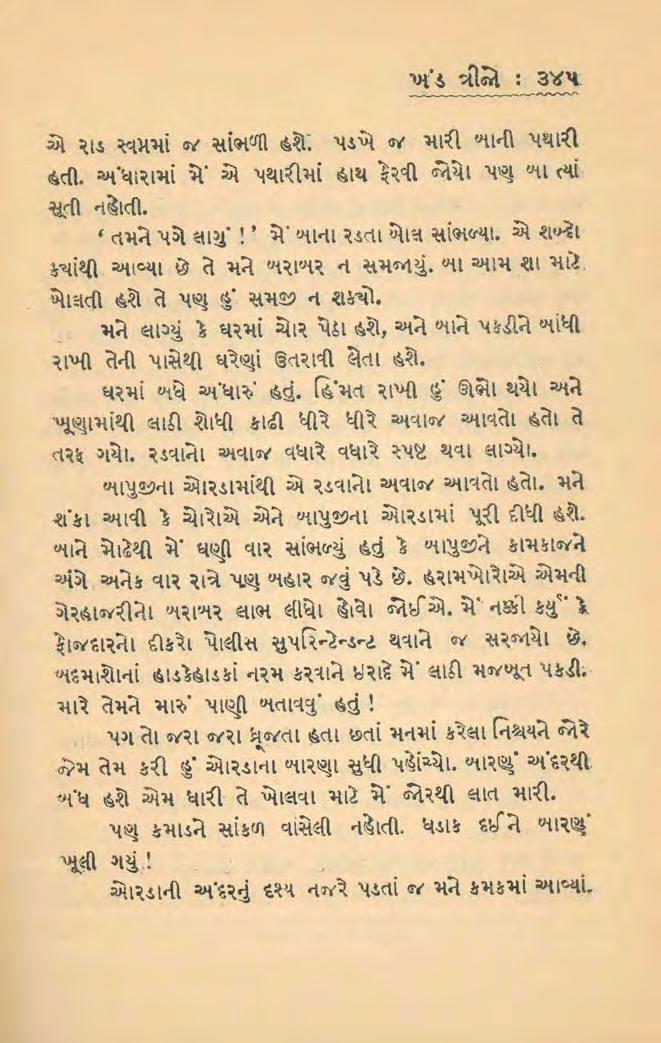 ખંડ ત્રીજો : ૩૪૫
એ રાડ સ્વપ્નમાં જ સાંભળી હશે. પડખે જ મારી બાની પથારી
હતી. અંધારામાં મેં એ પથારીમાં હાથ ફેરવી જોયો પણ બા ત્યાં
સૂતી નહોતી.
‘ તમને પગે લાગું ! ’ મેં બાના રડતા બોલ સાંભળ્યા. એ શબ્દો
ક્યાંથી આવ્યા છે તે મને બરાબર ન સમજાયું. બા આમ શા માટે
બોલતી હશે તે પણ હું સમજી ન શક્યો.
મને લાગ્યું કે ઘરમાં ચોર પેઠા હશે, અને બાને પકડીને બાંધી
રાખી તેની પાસેથી ઘરેણાં ઉતરાવી લેતા હશે.
ઘરમાં બધે અંધારું હતું. હિંમત રાખી હું ઊભો થયો અને
ખૂણામાંથી લાઠી શોધી કાઢી ધીરે ધીરે અવાજ આવતો હતો તે
તરફ ગયો. રડવાનો અવાજ વધારે વધારે સ્પષ્ટ થવા લાગ્યો.
બાપુજીના ઓરડામાંથી એ રડવાનો અવાજ આવતો હતો. મને
શંકા આવી કે ચોરોએ એને બાપુજીના ઓરડામાં પૂરી દીધી હશે.
બાને મોઢેથી મેં ઘણી વાર સાંભળ્યું હતું કે બાપુજીને કામકાજને
અંગે અનેક વાર રાત્રે પણ બહાર જવું પડે છે. હરામખોરોએ એમની
ગેરહાજરીનો બરાબર લાભ લીધો હોવો જોઈએ. મેં નક્કી કર્યું કે
ફોજદારનો દીકરો પોલીસ સુપરિન્ટેન્ડન્ટ થવાને જ સરજાયો છે.
બદમાશોનાં હાડકેહાડકાં નરમ કરવાને ઇરાદે મેં લાઠી મજબૂત પકડી.
મારે તેમને મારું પાણી બતાવવું હતું !
પગ તો જરા જરા ધ્રૂજતા હતા છતાં મનમાં કરેલા નિશ્ચયને જોરે
જેમ તેમ કરી હું ઓરડાના બારણા સુધી પહોંચ્યો. બારણું અંદરથી
બંધ હશે એમ ધારી તે ખોલવા માટે મેં જોરથી લાત મારી.
પણ કમાડને સાંકળ વાસેલી નહોતી. ધડાક દઈને બારણું
ખૂલી ગયું !
ઓરડાની અંદરનું દશ્ય નજરે પડતાં જ મને કમકમાં આવ્યાં.